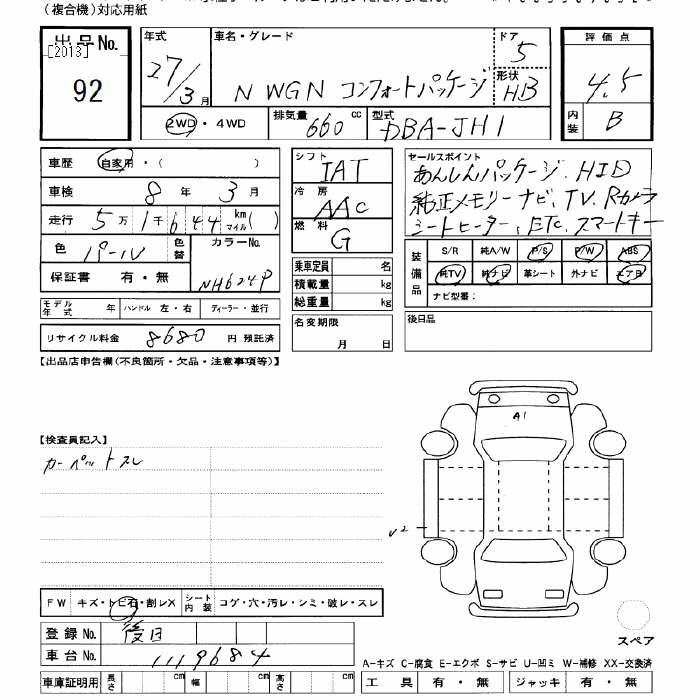 (複合機)対応用紙
出品No.
[2013]
92
年式
27/3月
車名・グレード
N WGN コンフォートパッケージ
ドア
5
形状
HB
評価点
4.5
内装
B
2WD・4WD
排気量 660 cc
型式 DBA-JH1
車歴 自家用・( )
車検 8年 3月
走行 5万 1千 6 4 4 km マイル ( )
色 パール 色替
カラーNo.
NH624P
保証書 有・無
モデル年式 年 ハンドル 左・右 ディーラー・並行
リサイクル料金 8680 円 預託済
シフト
IAT
冷房
AAC
燃料
G
乗車定員 名
積載量 kg
総重量 kg
名変期限
月 日
セールスポイント
あんしんパッケージ、HID
純正メモリーナビ、TV、Rカメラ
シートヒーター、ETC、スマートキー
装備品
S/R 純A/W P/S P/W ABS
純TV 純ナビ 革シート 外ナビ エアB
ナビ型番：
後日品
【出品店申告欄(不良箇所・欠品・注意事項等)】
【検査員記入】
カーペットスレ
A1
√2
スペア
FW キズ・トビ石・割レX
シート内装 コゲ・穴・汚レ・シミ・破レ・スレ
登録No. 後日
車台No. 1119684
車庫証明用 長さ cm 幅 cm 高さ cm
A-キズ C-腐食 E-エクボ S-サビ U-凹ミ W-補修 XX-交換済
工具 有・無 ジャッキ 有・無